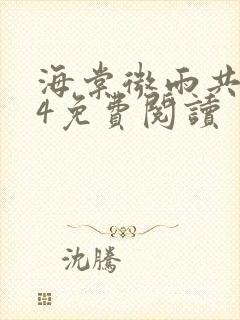 海棠微雨共
4免費閱讀
沈騰